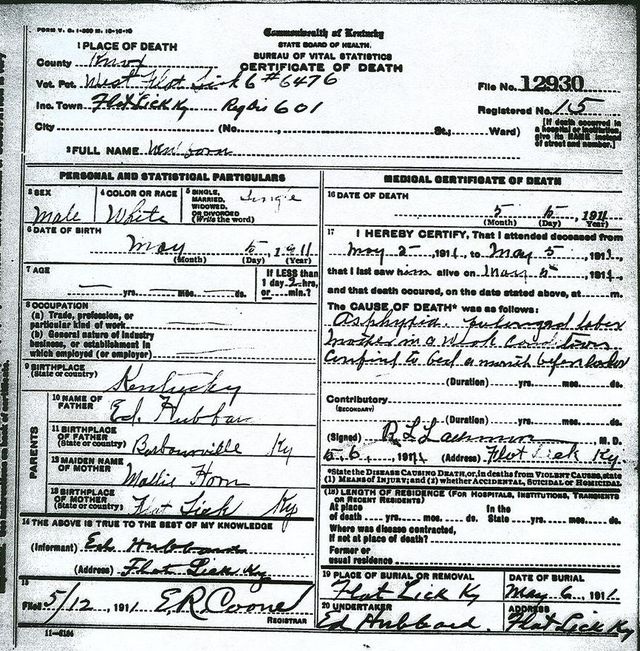 FORM V. S. 1-
Commonwealth of Kentucky
STATE BOARD OF HEALTH.
BUREAU OF VITAL STATISTICS
CERTIFICATE OF DEATH
1 PLACE OF DEATH
County Knox
Vot. Pct. West Flat Lick 6 #6476
Inc. Town Flat Lick Ky 601
City (No. St.; Ward)
File No. 12930
Registered No. 15
[If death occurred in a hospital or institution give its NAME instead of street and number.]
2 FULL NAME
PERSONAL AND STATISTICAL PARTICULARS
3 SEX Male
4 COLOR OR RACE White
5 SINGLE, MARRIED, WIDOWED, OR DIVORCED (Write the word) Single
6 DATE OF BIRTH
May 5, 1911
(Month) (Day) (Year)
7 AGE
yrs. mos. ds.
If LESS than 1 day 2 hrs, or min.?
8 OCCUPATION
(a) Trade, profession, or particular kind of work
(b) General nature of industry business, or establishment in which employed (or employer)
9 BIRTHPLACE
(State or country) Kentucky
PARENTS
10 NAME OF FATHER Ed Hubbard
11 BIRTHPLACE OF FATHER (State or country) Barbourville Ky
12 MAIDEN NAME OF MOTHER Mollie Horn
13 BIRTHPLACE OF MOTHER (State or country) Flat Lick Ky
14 THE ABOVE IS TRUE TO THE BEST OF MY KNOWLEDGE
(Informant) Ed Hubbard
(Address) Flat Lick Ky
15
Filed 5/12, 1911 E.R. Coone
REGISTRAR
11-6184
MEDICAL CERTIFICATE OF DEATH
16 DATE OF DEATH
5 5, 1911
(Month) (Day) (Year)
17 I HEREBY CERTIFY, That I attended deceased from
May 5, 1911, to May 5, 1911,
that I last saw him alive on May 5, 1911,
and that death occurred, on the date stated above, at m.
The CAUSE OF DEATH* was as follows:
Asphyxia. prolonged labor
mother in a weak condition
Confined to bed a month before labor
(Duration) yrs. mos. ds.
Contributory
(SECONDARY)
(Duration) yrs. mos. ds.
(Signed) R L M. D.
5-6, 1911 (Address) Flat Lick Ky.
*State the DISEASE CAUSING DEATH, or, in deaths from VIOLENT CAUSES, state (1) MEANS OF INJURY; and (2) whether ACCIDENTAL, SUICIDAL or HOMICIDAL
(18) LENGTH OF RESIDENCE (FOR HOSPITALS, INSTITUTIONS, TRANSIENTS OR RECENT RESIDENTS)
At place of death yrs. mos. ds. In the State yrs. mos. ds.
Where was disease contracted, If not at place of death?
Former or usual residence
19 PLACE OF BURIAL OR REMOVAL Flat Lick Ky
DATE OF BURIAL May 6, 1911.
20 UNDERTAKER Ed Hubbard.
ADDRESS Flat Lick Ky